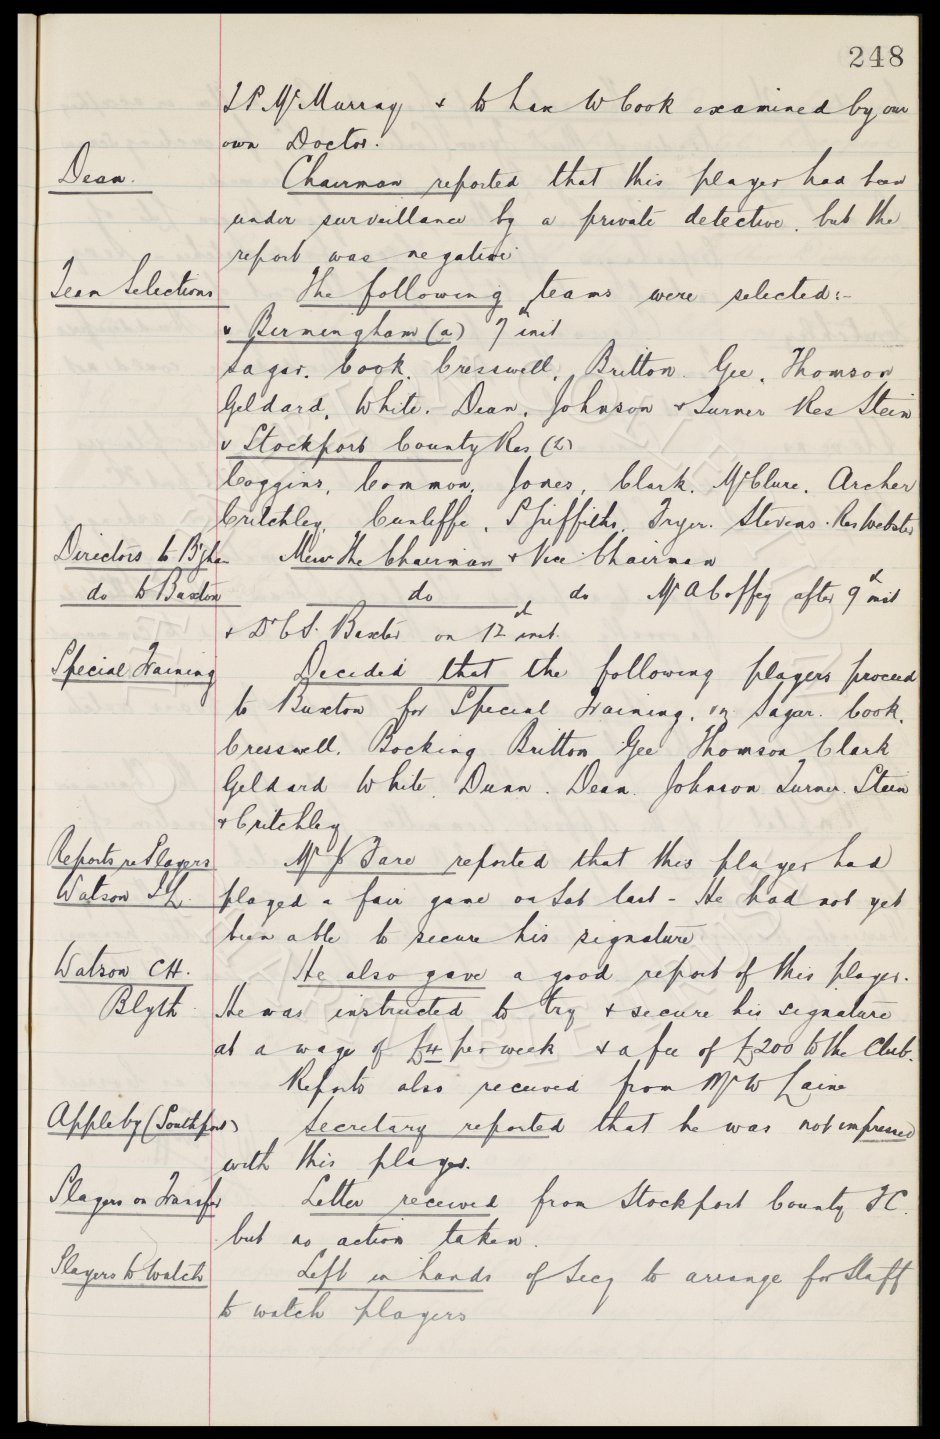 248
J P McMurray & to have W Cook examined by our
own Doctor.
Dean. Chairman reported that this player had been
under surveillance by a private detective, but the
report was negative
Team Selections The following teams were selected:-
v Birmingham (a) 7th inst
Sagar. Cook. Cresswell, Britton. Gee, Thomson
Geldard, White. Dean, Johnson & Turner Res Stein
v Stockport County Res (h)
Coggins, Common, Jones, Clark. McClure. Archer
Critchley, Cunliffe, P Griffiths, Fryer. Stevens. Res Webster
Directors to B'gham Messrs The Chairman & Vice Chairman
do to Buxton do do Mr A Coffey after 9th inst
& Dr C S Baxter on 12th inst.
Special Training Decided that the following players proceed
to Buxton for Special Training. viz Sagar. Cook.
Cresswell. Bocking Britton Gee Thomson Clark
Geldard White. Dunn. Dean. Johnson Turner. Stein
& Critchley
Reports re Players Mr J Fare reported that this player had
Watson played a fair game on Sat last - He had not yet
been able to secure his signature
Watson CH. He also gave a good report of this player.
Blyth He was instructed to try & secure his signature
at a wage of £4 per week & a fee of £200 to the Club.
Reports also received from Mr W Laine
Appleby (Southport) Secretary reported that he was not impressed
with this player.
Players on Transfer Letter received from Stockport County FC.
but no action taken.
Players to Watch Left in hands of Secy to arrange for Staff
to watch players